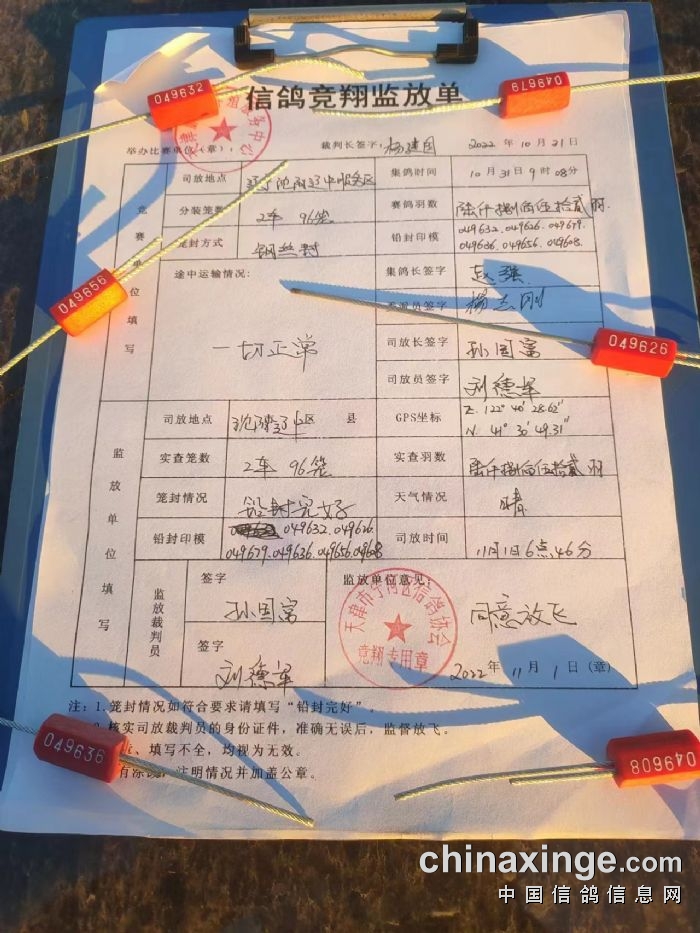 049632
049679
信鸽竞翔监放单
举办比赛单位(章):
裁判长签字:杨建国 2022 年 10 月 31 日
竞赛单位填写
司放地点
集鸽时间 10 月 31 日 9 时 08 分
分装笼数 2车 96笼
赛鸽羽数 陆仟捌佰伍拾贰 羽
笼封方式 钢丝封
铅封印模 049632.049626.049679.
049636.049656.049608.
途中运输情况:
一切正常
集鸽长签字 赵强
签字 杨志刚
司放长签字 孙国富
司放员签字 刘德
049656
049626
监放单位填写
司放地点 区 县
GPS坐标 E. 122° 40′ 28.62″
N. 41° 30′ 49.31″
实查笼数 2车 96笼
实查羽数 陆仟捌佰伍拾贰 羽
笼封情况 铅封完好
天气情况 晴
铅封印模 049632.049626.
049679.049636.049656.049608
司放时间 11月1日6点46分
监放裁判员
签字
孙国富
签字
刘德
监放单位意见:
同意放飞
天津市宁河区信鸽协会
竞翔专用章
2022 年 11 月 1 日 (章)
注: 1.笼封情况如符合要求请填写“铅封完好”。
核实司放裁判员的身份证件,准确无误后,监督放飞。
、填写不全,均视为无效。
有涂改,注明情况并加盖公章。
049636
049608
chinaxinge.com
中国信鸽信息网